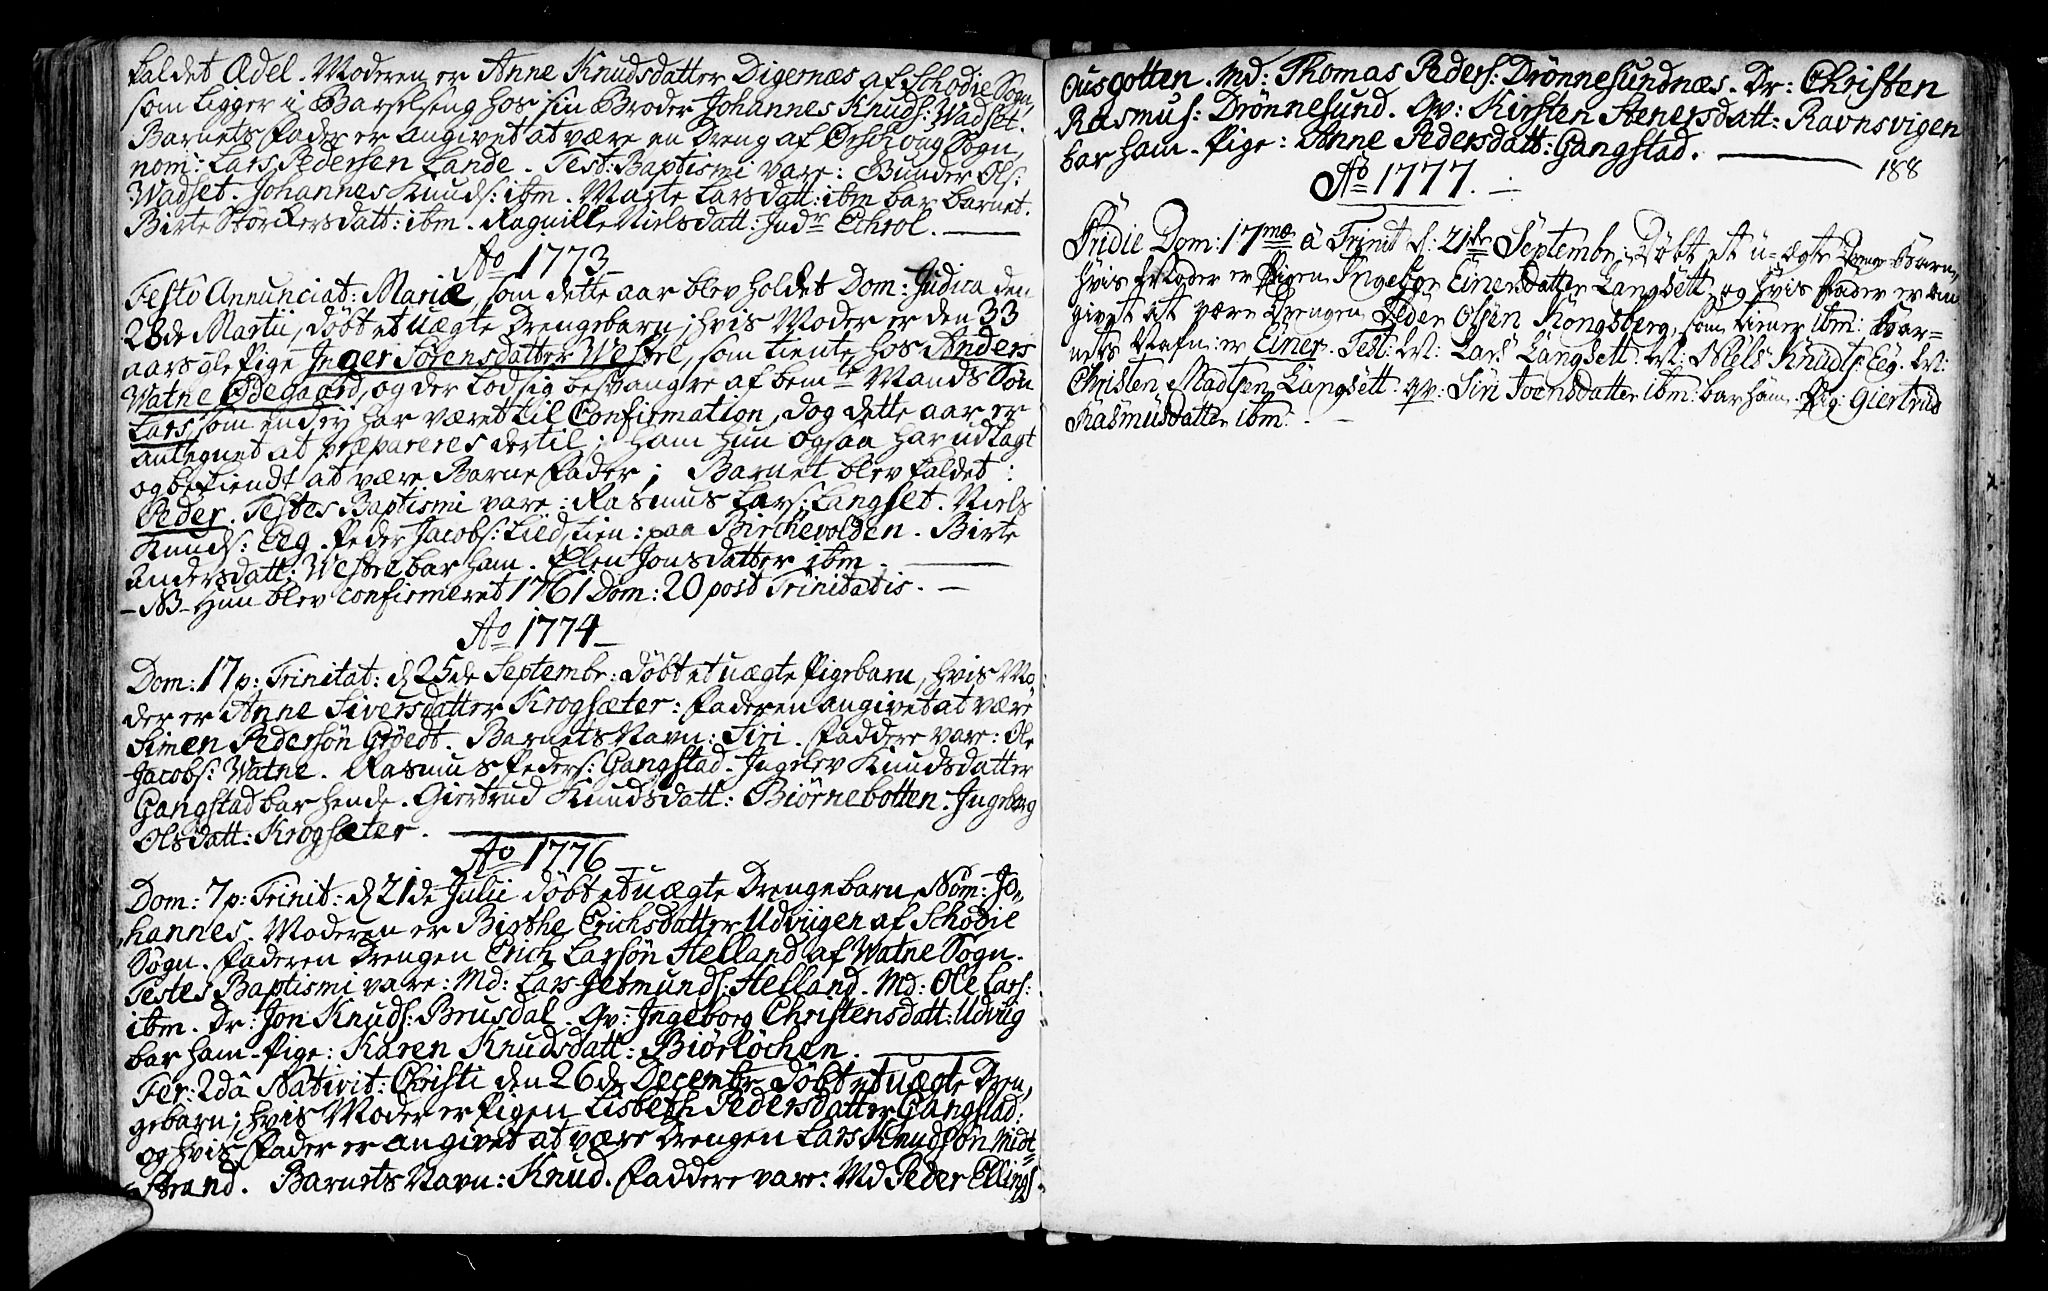 kaldet Ædel. Moderen er Anne Knudsdatter Digernæs af Schodie Sogn,
som ligger i Barselseng hos sin Broder Johannes Knuds: Wadset.
Barnets Fader er angivet at være en Dreng af Ørschoug Sogn,
nom: Lars Pedersen Lande. Test: Baptismi vare: Gunder Ols:
Wadset. Johannes Knuds: ibm. Marte Larsdatt: ibm bar barnet.
Birte Storckersdatt: ibm. Ragnille Nielsdatt: Indr Echrol.
Ao 1773
Festo Annunciat: Mariæ, som dette aar blev holdet Dom: Judica den
28de Martii, döbt et uægte Drengebarn; hvis Moder er den 33
aars gle Pige Inger Sørensdatter Westre, som tiente hos Anders
Watne Ødegaard, og der lod sig besvangre af bemte Mands Søn
Lars som endej har været til Confirmation, dog dette aar er
antegnet at præpareres dertil; ham hun ogsaa har udlagt
og bekiendt at være BarneFader; Barnet blev kaldet:
Peder. Testes Baptismi vare: Rasmus Lars: Langset. Niels
Knuds: Eeg. Peder Jacobs: Lied, tien: paa Birchevolden. Birte
Andersdatt: Westre bar ham. Elen Jonsdatter ibm.
- NB - Hun blev confirmeret 1761 Dom: 20 post Trinitatis. -
Ao 1774
Dom: 17 p: Trinitat: d 25de Septembr: döbt et uægte Pigebarn, hvis Mo:
der er Anne Siversdatter Krogsæter: Faderen angivet at være
Simen Pedersön Grøedt. Barnets Navn: Siri. Faddere vare: Ole
Jacobs: Watne. Rasmus Peders: Gangstad. Ingelev Knudsdatter
Gangstad bar hende. Giertrud Knudsdatt: Biørnebotten. Ingeborg
Olsdatt: Krogsæter.
Ao 1776
Dom: 7 p: Trinit: d 21de Julii döbt et uægte Drengebarn, Nom: Jo-
hannes. Moderen er Birthe Erichsdatter Udviigen af Schodie
Sogn. Faderen Drengen Erich Larsön Helland af Watne Sogn.
Testes Baptismi vare: Md: Lars Jetmunds: Helland. Md: Ole Lars:
ibm. Dr: Jon Knuds: Brusdal. Qv: Ingeborg Christensdatt: Udviig
bar ham. Pige: Karen Knudsdatt: Biørløchen.
Fer: 2dâ Nativit: Christi den 26de Decembr. döbt et uægte Dren,
gebarn; hvis Moder er Pigen Lisbeth Pedersdatter Gangstad:
og hvis Fader er angivet at være Drengen Lars Knudsøn Midt-
Strand. Barnets Navn: Knud. Faddere vare: Md Peder Ellings:
Ousgotten. Md: Thomas Peders: Drønnesundnæs. Dr: Christen
Rasmus: Drønnesund. Qv: Kirsten Stenersdatt: Ravnsvigen
bar ham. Pige: Anne Pedersdatt: Gangstad.
188
Ao 1777.
Pridie Dom: 17mæ â Trinit d: 21de Septembr: Döbt et u-ægte Drenge Barn,
hvis Moder er Pigen Ingebor Einersdatter Langsett, og hvis Fader er an
givet at være Drengen Peder Olsen Kongsberg, som tiener ibm: Bar=
nets Nafn: er Einer. Test: M: Lars Langsett. M: Niels Knuds: Eeg. M:
Christen Madtsen Langsett. qv: Siri Joensdatter ibm: bar ham. Pig: Giertrud
Rasmusdatter ibm: